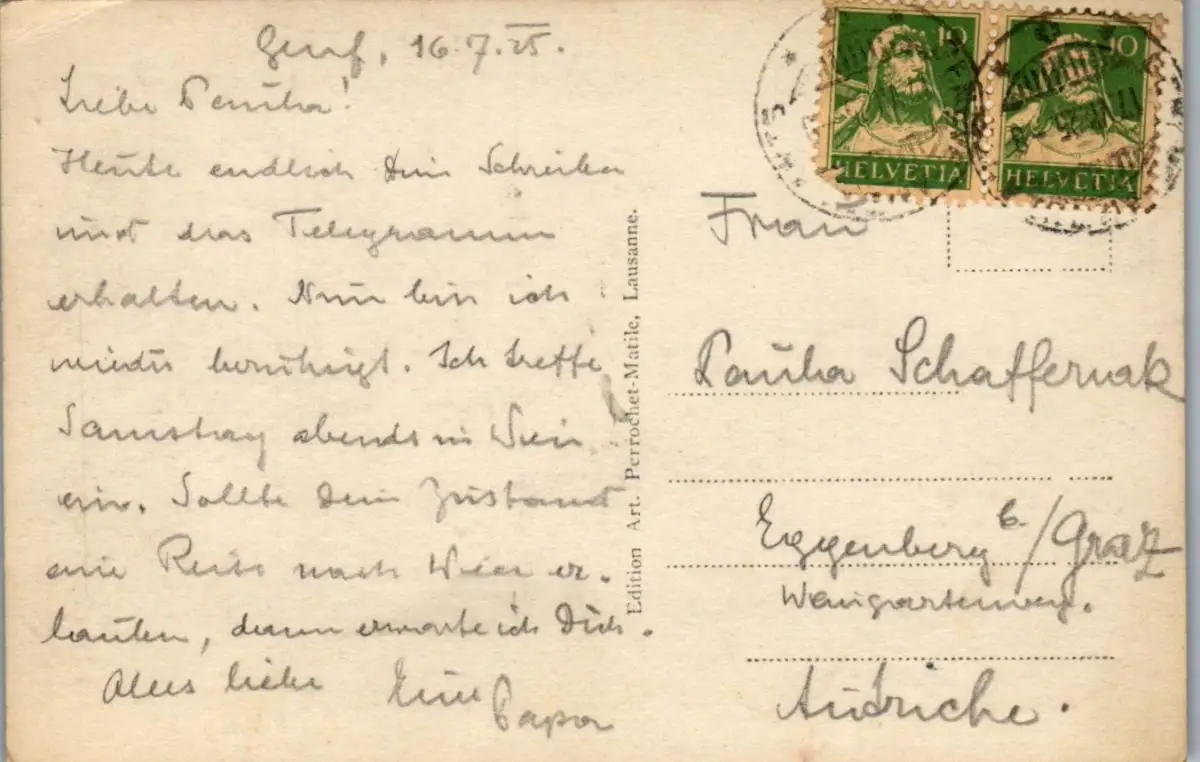 Genf, 16.7.25.
Liebe Paula!
Heute endlich Dein Schreiben
und das Telegramm
erhalten. Nun bin ich
wieder beruhigt. Ich treffe
Samstag abends in Wien
ein. Sollte Dein Zustand
eine Reise nach Wien er-
lauben, dann erwarte ich Dich.
Alles Liebe
Papa
Edition Art. Perrochet-Matile, Lausanne.
10
HELVETIA
10
HELVETIA
Frau
Paula Schaffernak
Eggenberg b./Graz
Autriche.